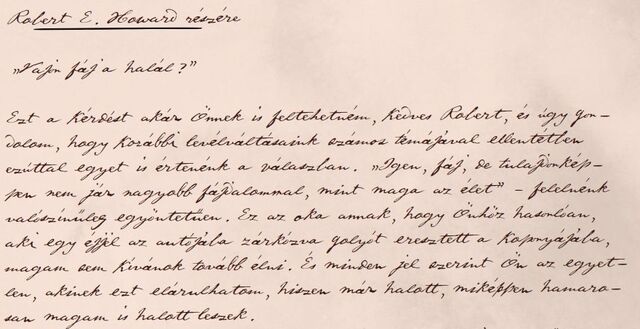 Robert E. Howard részére
„Vajon fáj a halál?”
Ezt a kérdést akár Önnek is feltehetném, kedves Robert, és úgy gon-
dolom, hogy korábbi levélváltásaink számos témájával ellentétben
ezúttal egyet is értenénk a válaszban. „Igen, fáj, de tulajdonkép-
pen nem jár nagyobb fájdalommal, mint maga az élet” – felelnénk
valószínűleg egyöntetűen. Ez az oka annak, hogy Önhöz hasonlóan,
aki egy éjjel az autójába zárkózva golyót eresztett a koponyájába,
magam sem kívánok tovább élni. És minden jel szerint Ön az egyet-
len, akinek ezt elárulhatom, hiszen már halott, miképpen hamaro-
san magam is halott leszek.